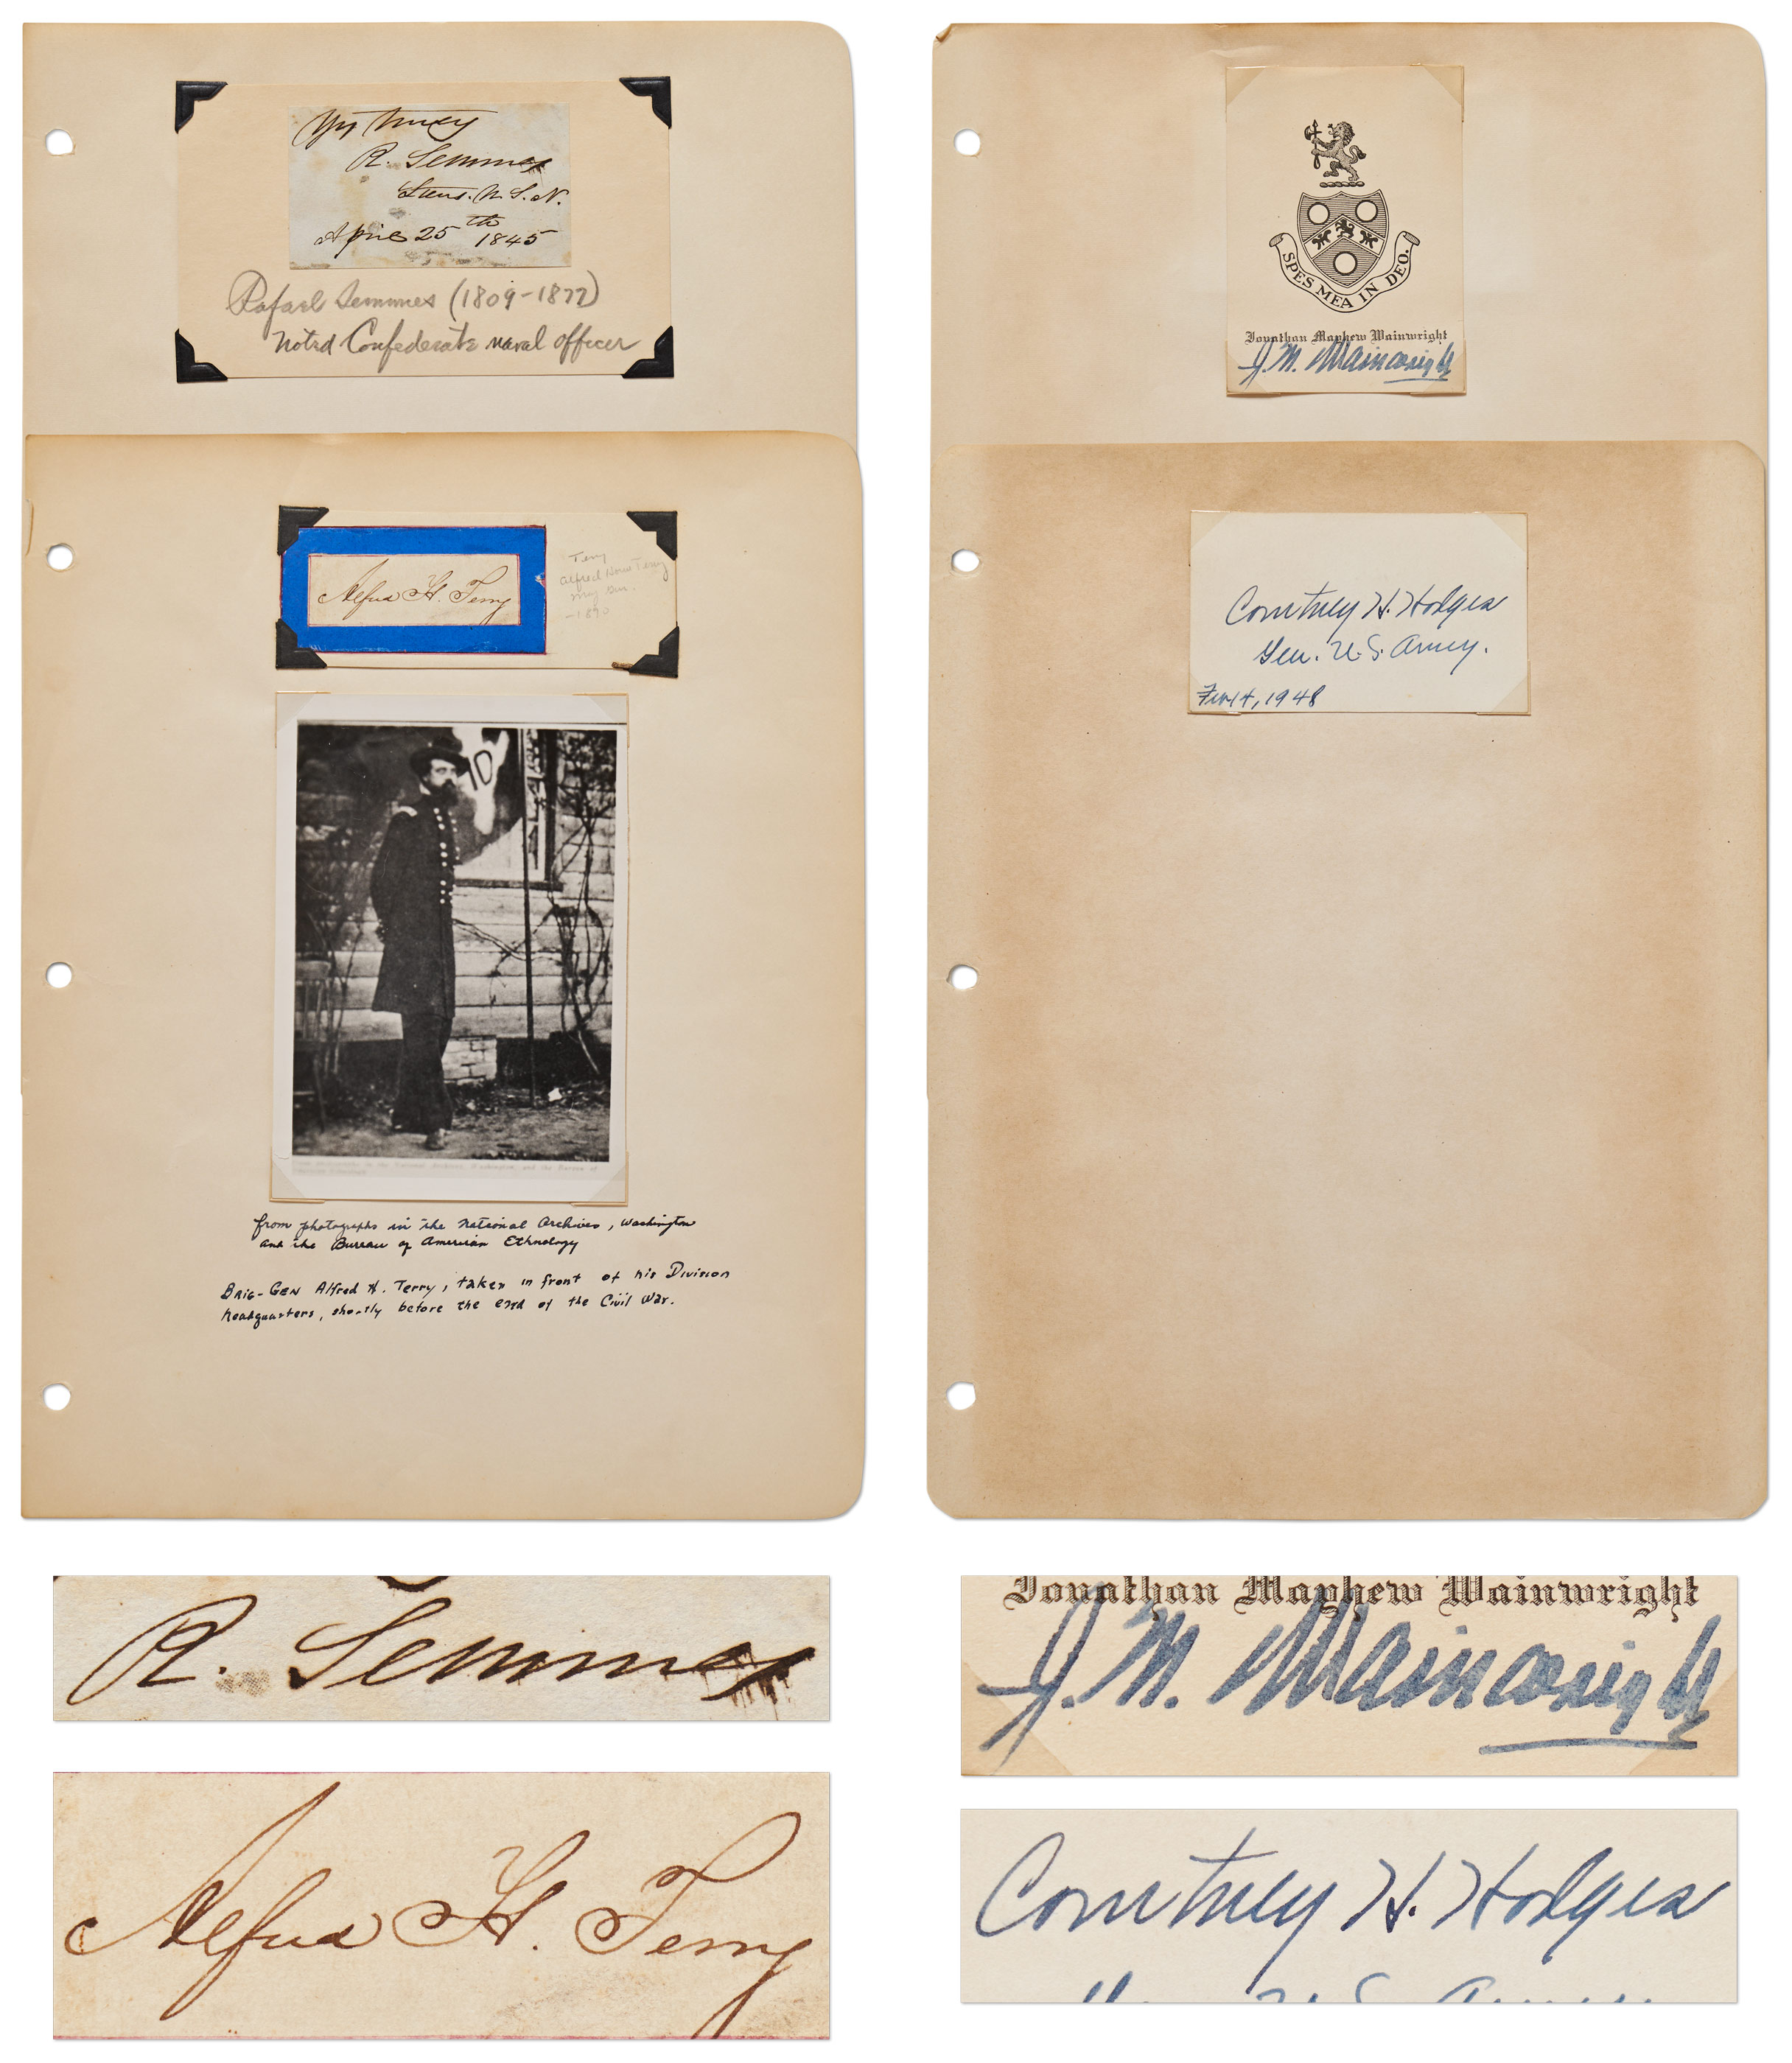 Yrs truly
R. Semmes
Lieut. U.S.N.
April 25th 1845
Rafael Semmes (1809-1877)
Noted Confederate naval officer
Alfred H. Terry
Terry
Alfred Howe Terry
Maj Gen.
-1890
10
from photographs in the National Archives, Washington
and the Bureau of American Ethnology
Brig-Gen Alfred H. Terry, taken in front of his Division
headquarters, shortly before the end of the Civil War.
SPES MEA IN DEO.
Jonathan Mayhew Wainwright
J. M. Wainwright
Courtney H. Hodges
Gen. U.S. Army.
Feb 14, 1948
R. Semmes
Alfred H. Terry
Jonathan Mayhew Wainwright
J. M. Wainwright
Courtney H. Hodges